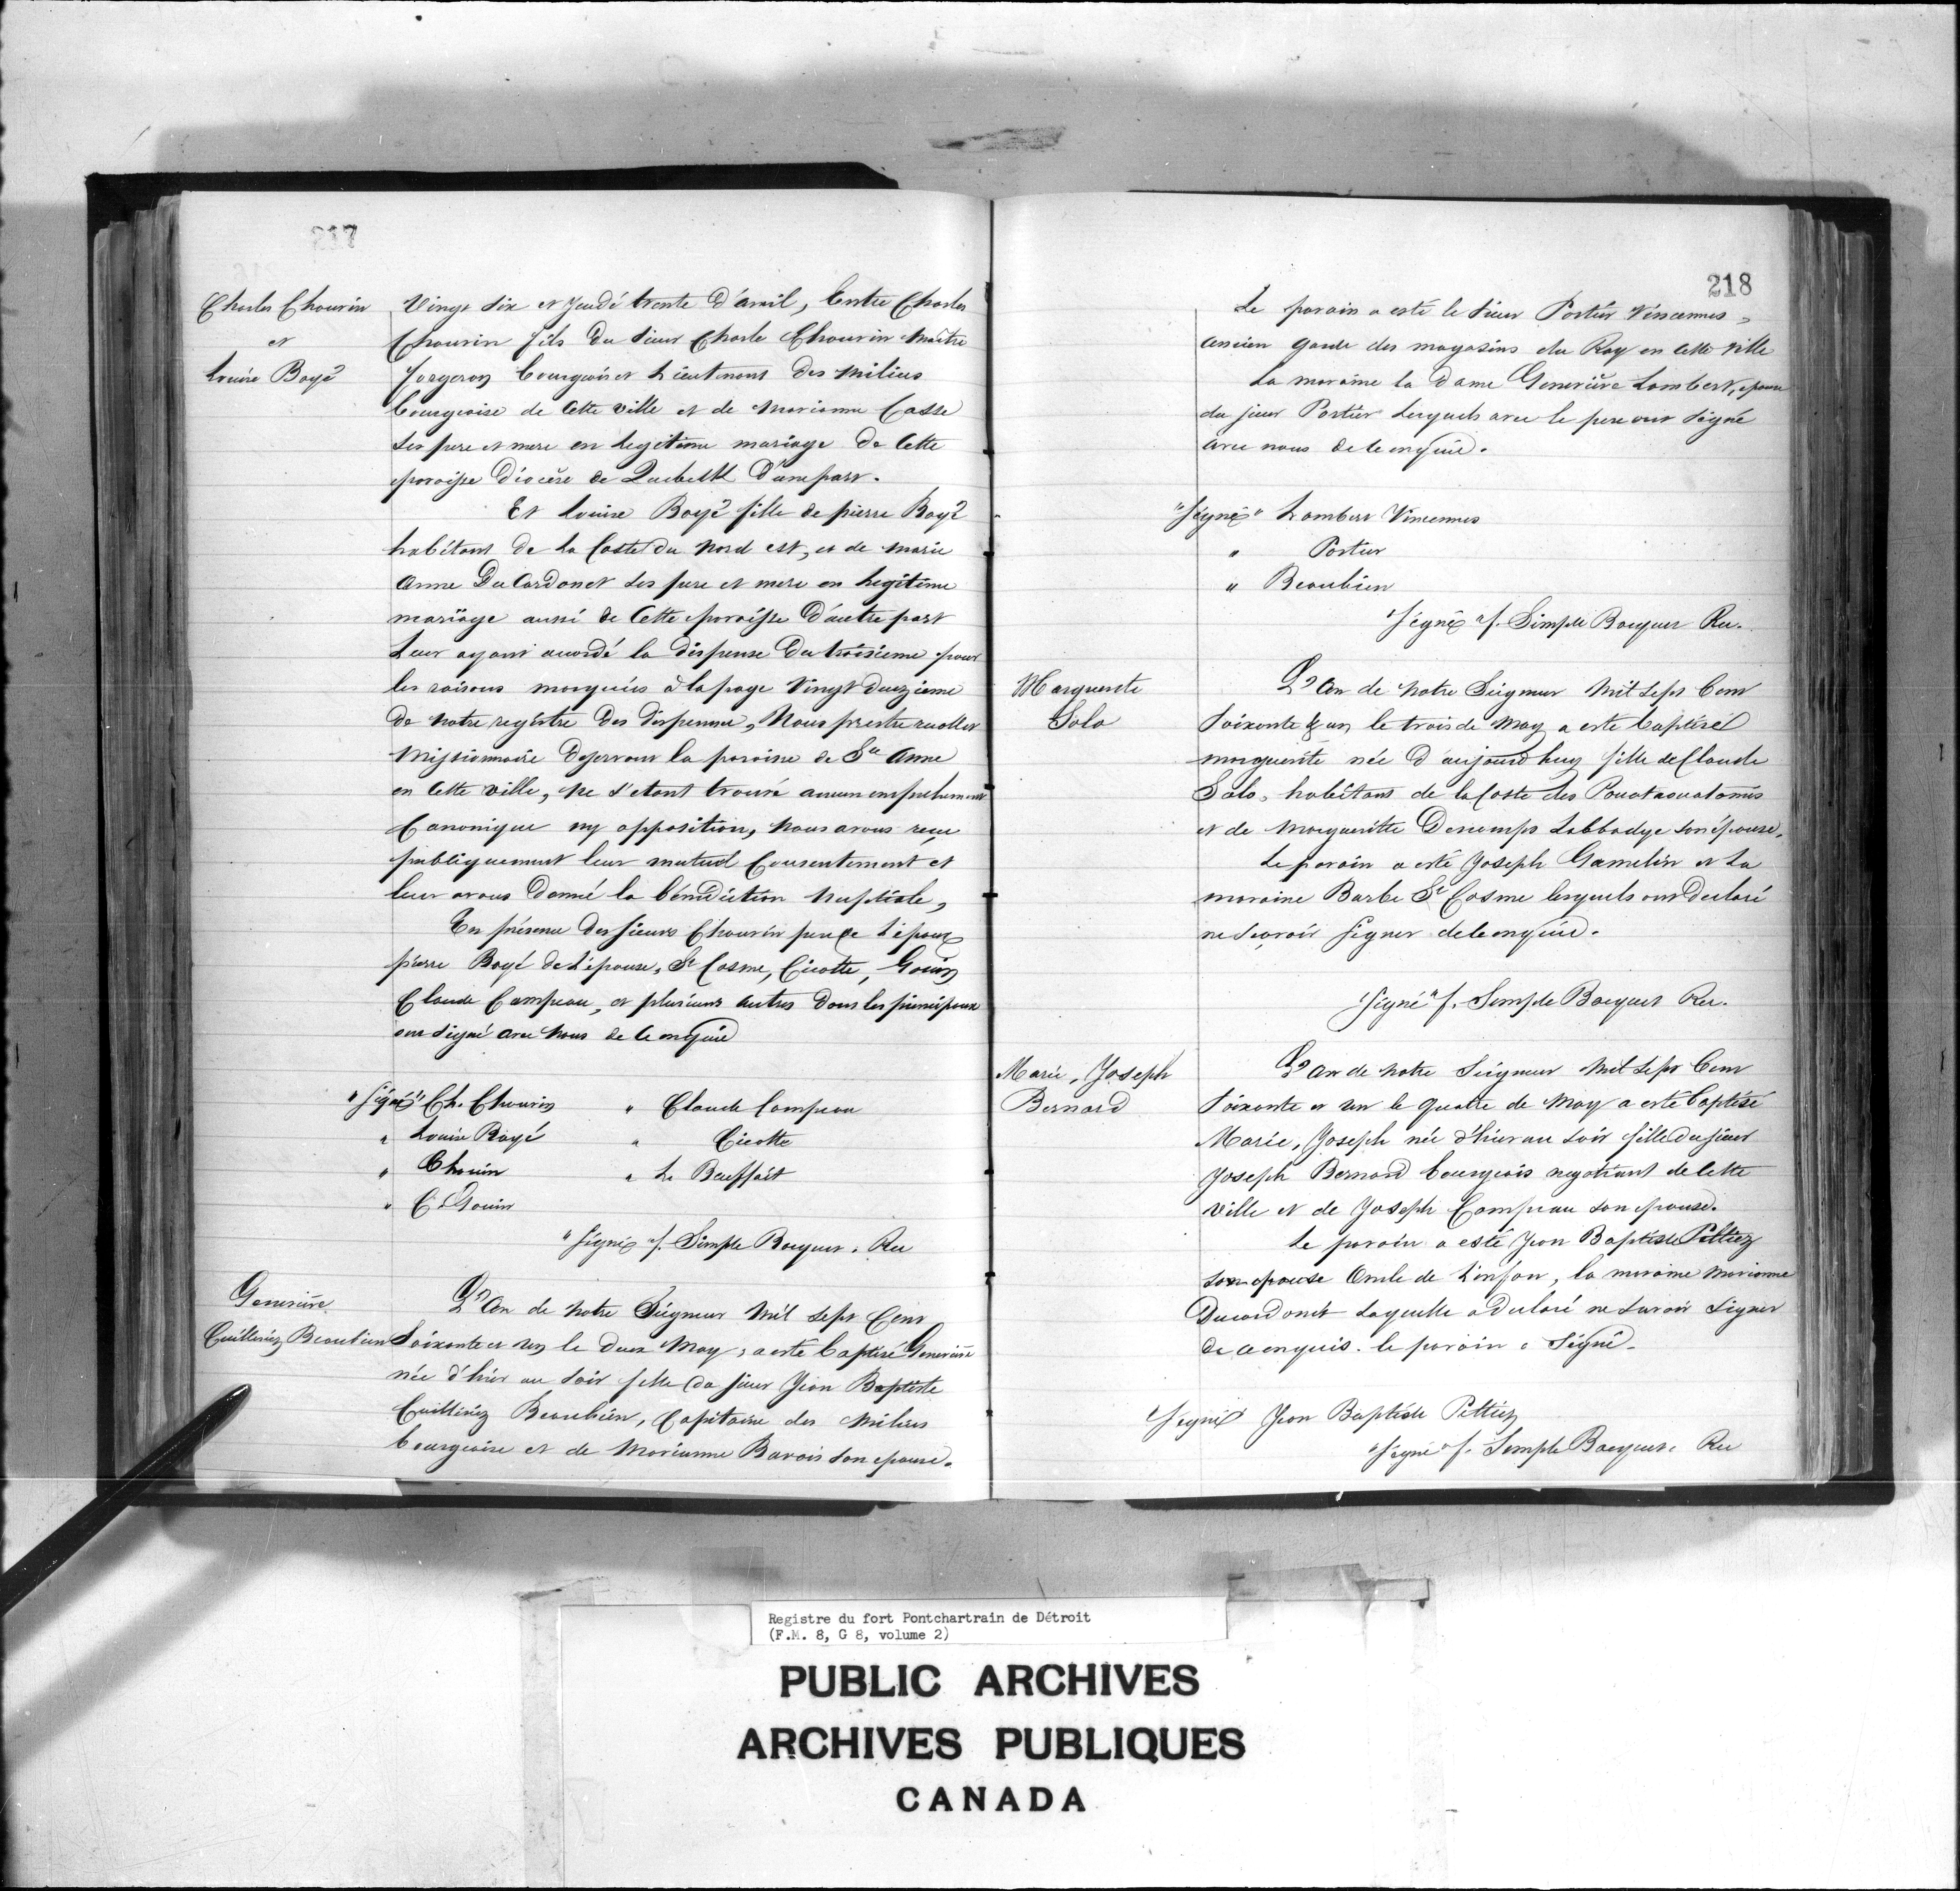 217
Charles Chouvin
et
Louise Boyé
Vingt six et Jeudi trente d'avril, Entre Charles
Chouvin fils du sieur Charle Chouvin Maitre
forgeron bourgeois et Lieutenant des milices
bourgeoise de Cette ville et de Marianne Casse
Ses pere et mere en legitime mariage de Cette
paroisse diocèse de Quebeck d'une part.
Et Louise Boyé fille de pierre Boyé
habitant de la Coste du Nord est, et de Marie
Anne Du Cardonet ses pere et mere en legitime
mariage aussi de Cette paroisse d'autre part
Leur ayant accordé la dispense du troisieme pour
les raisons marquées à la page Vingt deuzieme
de notre registre des dispense, Nous prestre recollet
Missionnaire deservant la paroisse de Ste Anne
en Cette ville, Ne s'etant trouvé aucun empechement
Canonique ny opposition, Nous avons reçu
publiquement leur mutuel Consentement et
leur avons donné la bénédiction Nuptiale,
En présence des sieurs Chouvin pere de l'époux
pierre Boyé de l'épouse, St Cosme, Cicotte, Gouin
Claude Campeau, et plusieurs autres dont les principaux
ont signé avec Nous de ce enquie
"Signé" Ch. Chouvin " Claude Campeau
" Louise Boyé " Cicotte
" Chouin " L. Beuffait
" C Gouin
"Signé" f. Simple Bocquet. Rec
Genevieve
Cuilleriez Beaubien
L'an de Notre Seigneur Mil sept Cent
Soixante et un le deux May, a esté baptisé Genevieve
née d'hier au soir fille du sieur Jean Baptiste
Cuilleriez Beaubien, Capitaine des Milices
bourgeoise et de Marianne Barois son epouse.
218
Le parain a esté le sieur Portier Vincennes,
ancien garde des magasins du Roy en Cette ville
La maraine la Dame Genevière Lambert, epouse
du sieur Portier Lesquels avec le pere ont signé
avec nous de ce enquie.
"Signé" Lambert Vincennes
" Portier
" Beaubien
"Signé" f. Simple Bocquet Rec.
Marguerite
Solo
L'an de Notre Seigneur Mil sept Cent
Soixante & un le trois de May a esté baptisée
marguerite née d'aujourd'huy fille de Claude
Solo, habitant de la Coste des Pouataouatamis
et de Margueritte Descomps Labbadye son épouse.
Le parain a esté Joseph Gamelin et La
maraine Barbe St Cosme lesquels ont declaré
ne Savoir Signer de ce enquie.
"Signé" f. Simple Bocquet Rec.
Marie, Joseph
Bernard
L'an de Notre Seigneur Mil Sept Cent
Soixante et un le quatre de May a esté baptisé
Marie, Joseph née d'hier au soir fille du sieur
Joseph Bernard bourgeois negotiant de Cette
ville et de Joseph Campeau son epouse.
Le parain a esté Jean Baptiste Peltiez
son epouse oncle de l'enfan, la maraine Marianne
Ducardonet Laquelle a declaré ne Savoir Signer
de ce enquis. le parain a Signé.
"Signé" Jean Baptiste Peltiez
"Signé" f. Simple Bocquet. Rec
Registre du fort Pontchartrain de Détroit
(F.M. 8, G 8, volume 2)
PUBLIC ARCHIVES
ARCHIVES PUBLIQUES
CANADA